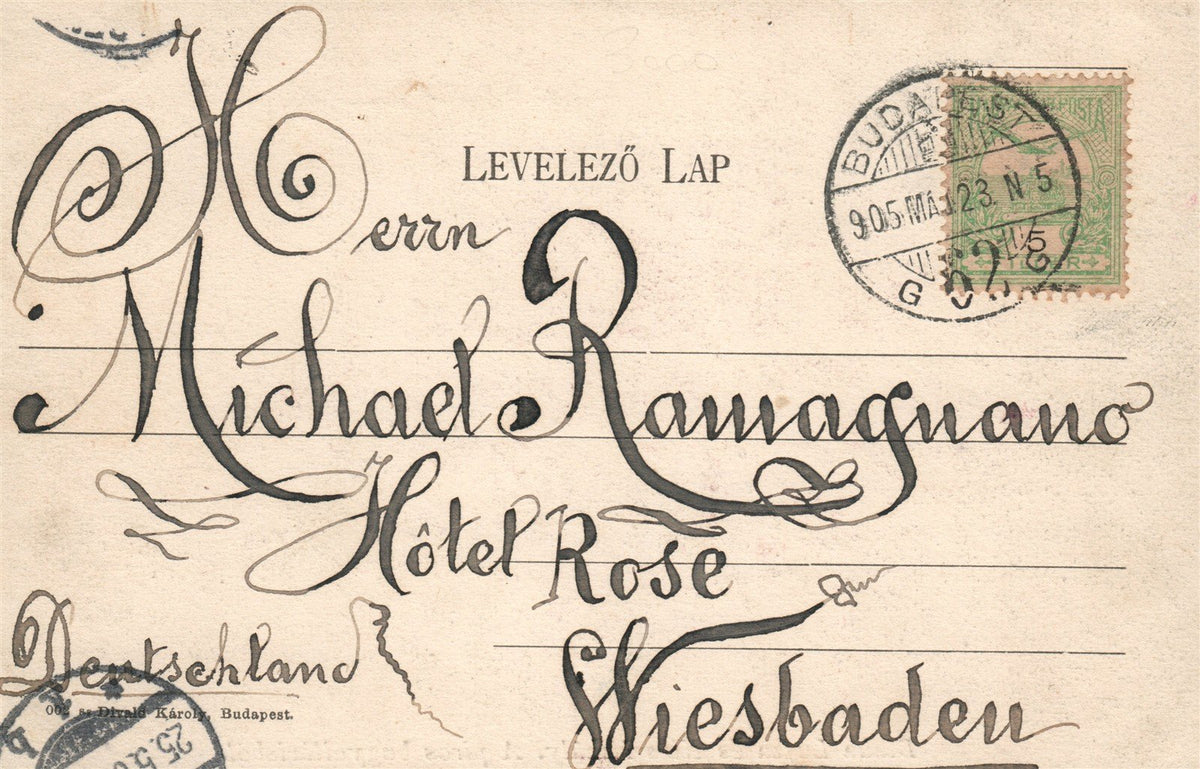 LEVELEZŐ LAP
BUDAPEST
905 MÁJ 23. N 5
62
POSTA
5
Herrn
Michael Ramagnano
Hôtel Rose
Wiesbaden
Deutschland
Divald Károly, Budapest.
25.5.